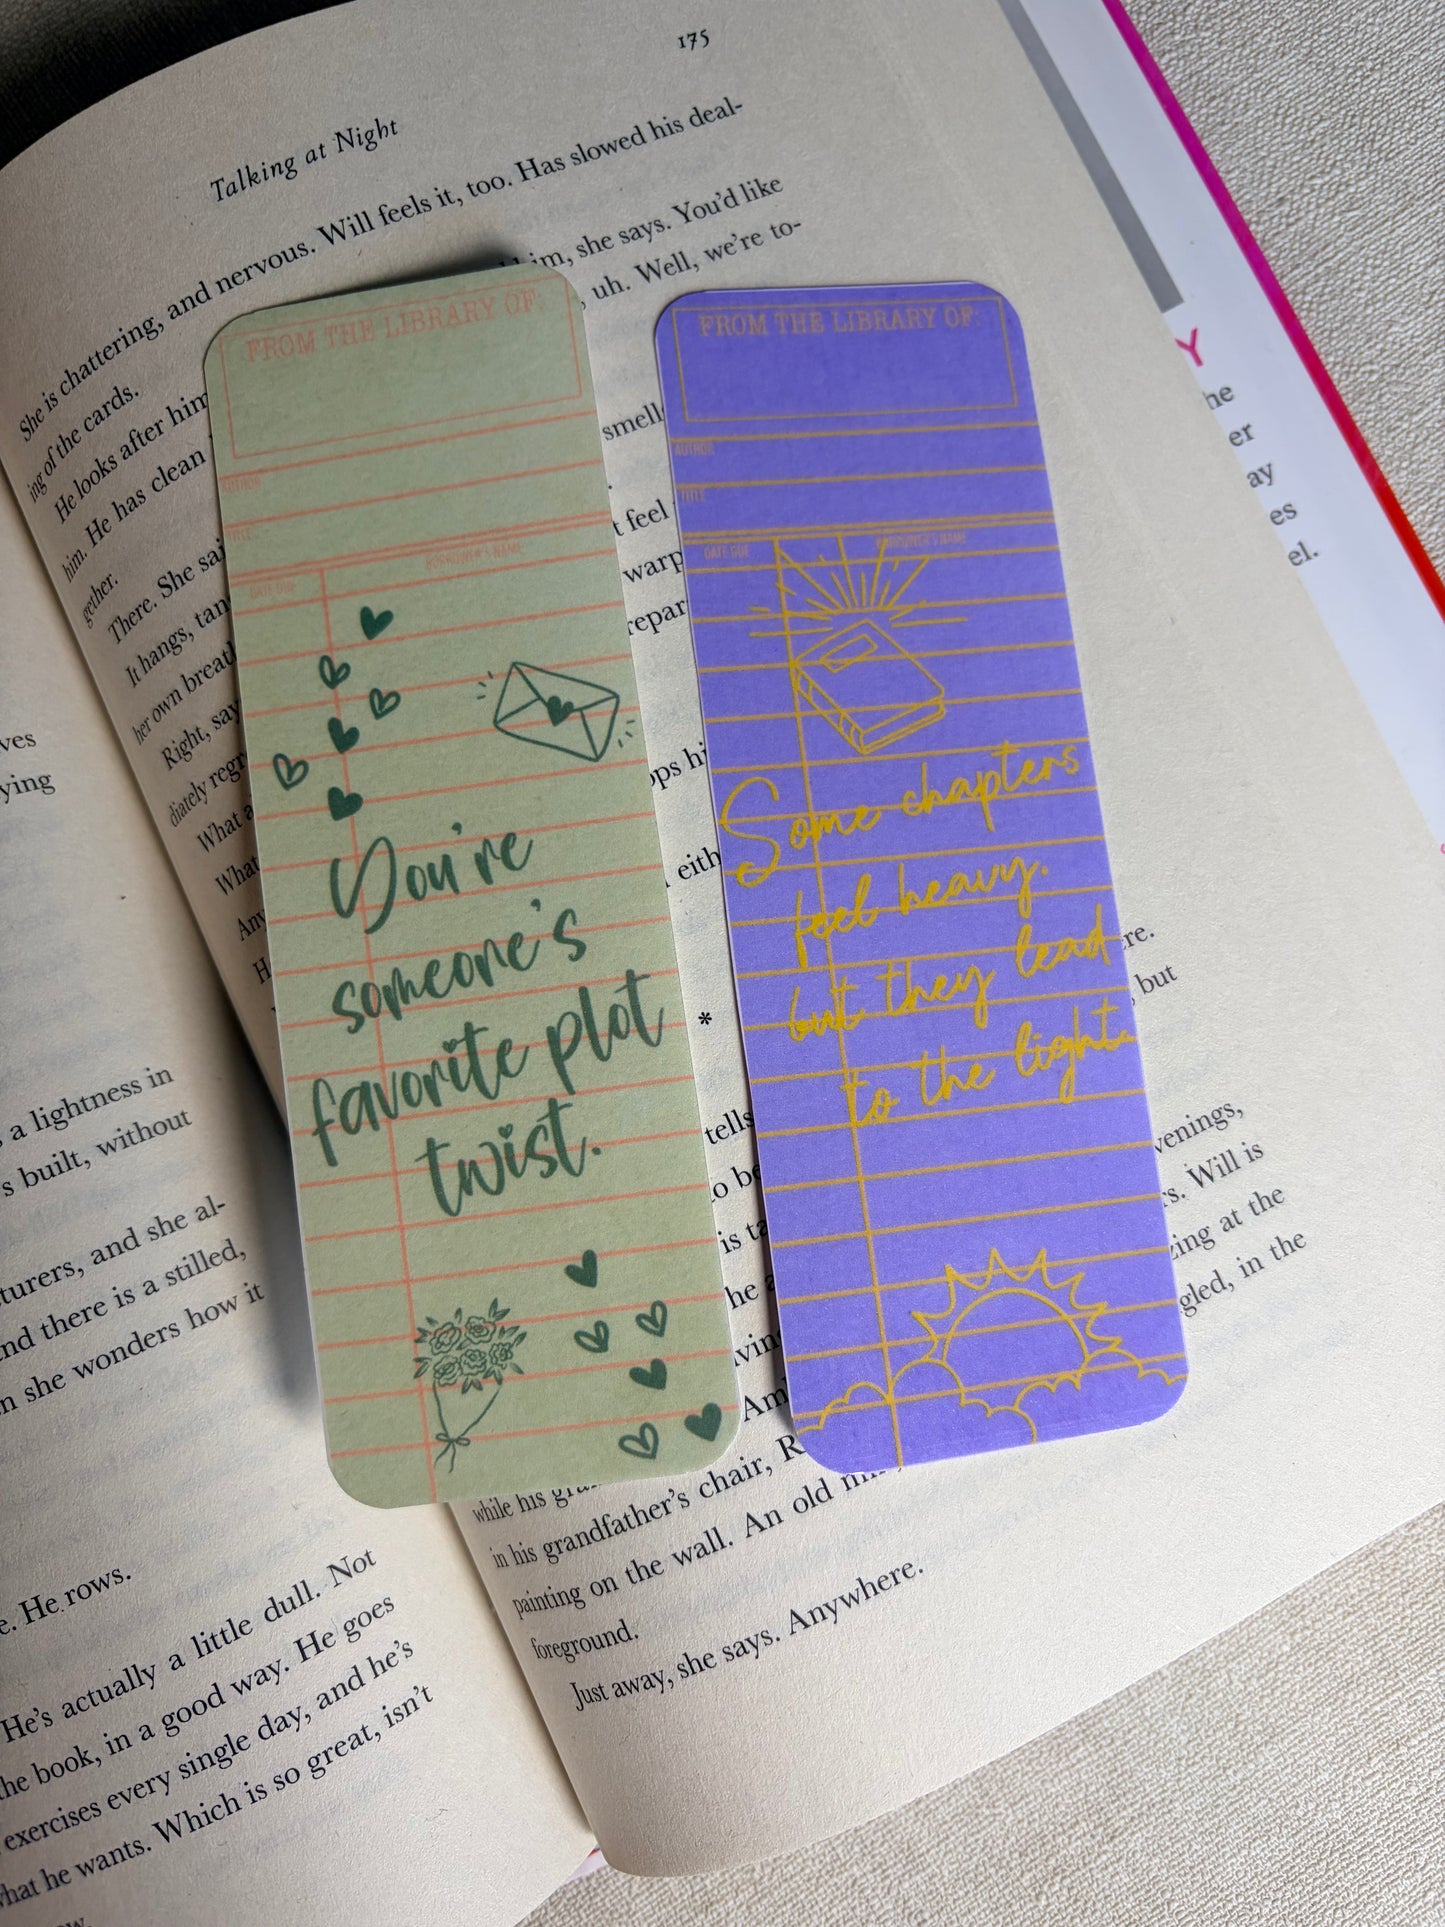 175
Talking at Night
She is chattering, and nervous. Will feels it, too. Has slowed his deal-
ing of the cards.
He looks after him
him, she says. You'd like
him. He has clean
uh. Well, we're to-
gether.
There. She sai
It hangs, tan
her own breath
Right, say
diately regr
What a
What
Any
H
smells
t feel
warp
repar
ops hi
eith
*
re.
but
tells
venings,
to be
rs. Will is
is ta
zing at the
he a
gled, in the
ving
Am
while his gran
in his grandfather's chair, R
painting on the wall. An old
foreground.
Just away, she says. Anywhere.
FROM THE LIBRARY OF:
AUTHOR
TITLE
DATE DUE
BORROWER'S NAME
You're
someone's
favorite plot
twist.
FROM THE LIBRARY OF:
AUTHOR
TITLE
DATE DUE
BORROWER'S NAME
Some chapters
feel heavy.
but they lead
to the light.
ves
ying
a lightness in
s built, without
turers, and she al-
nd there is a stilled,
n she wonders how it
e. He rows.
He's actually a little dull. Not
the book, in a good way. He goes
exercises every single day, and he's
what he wants. Which is so great, isn't
Y
he
er
ay
es
el.